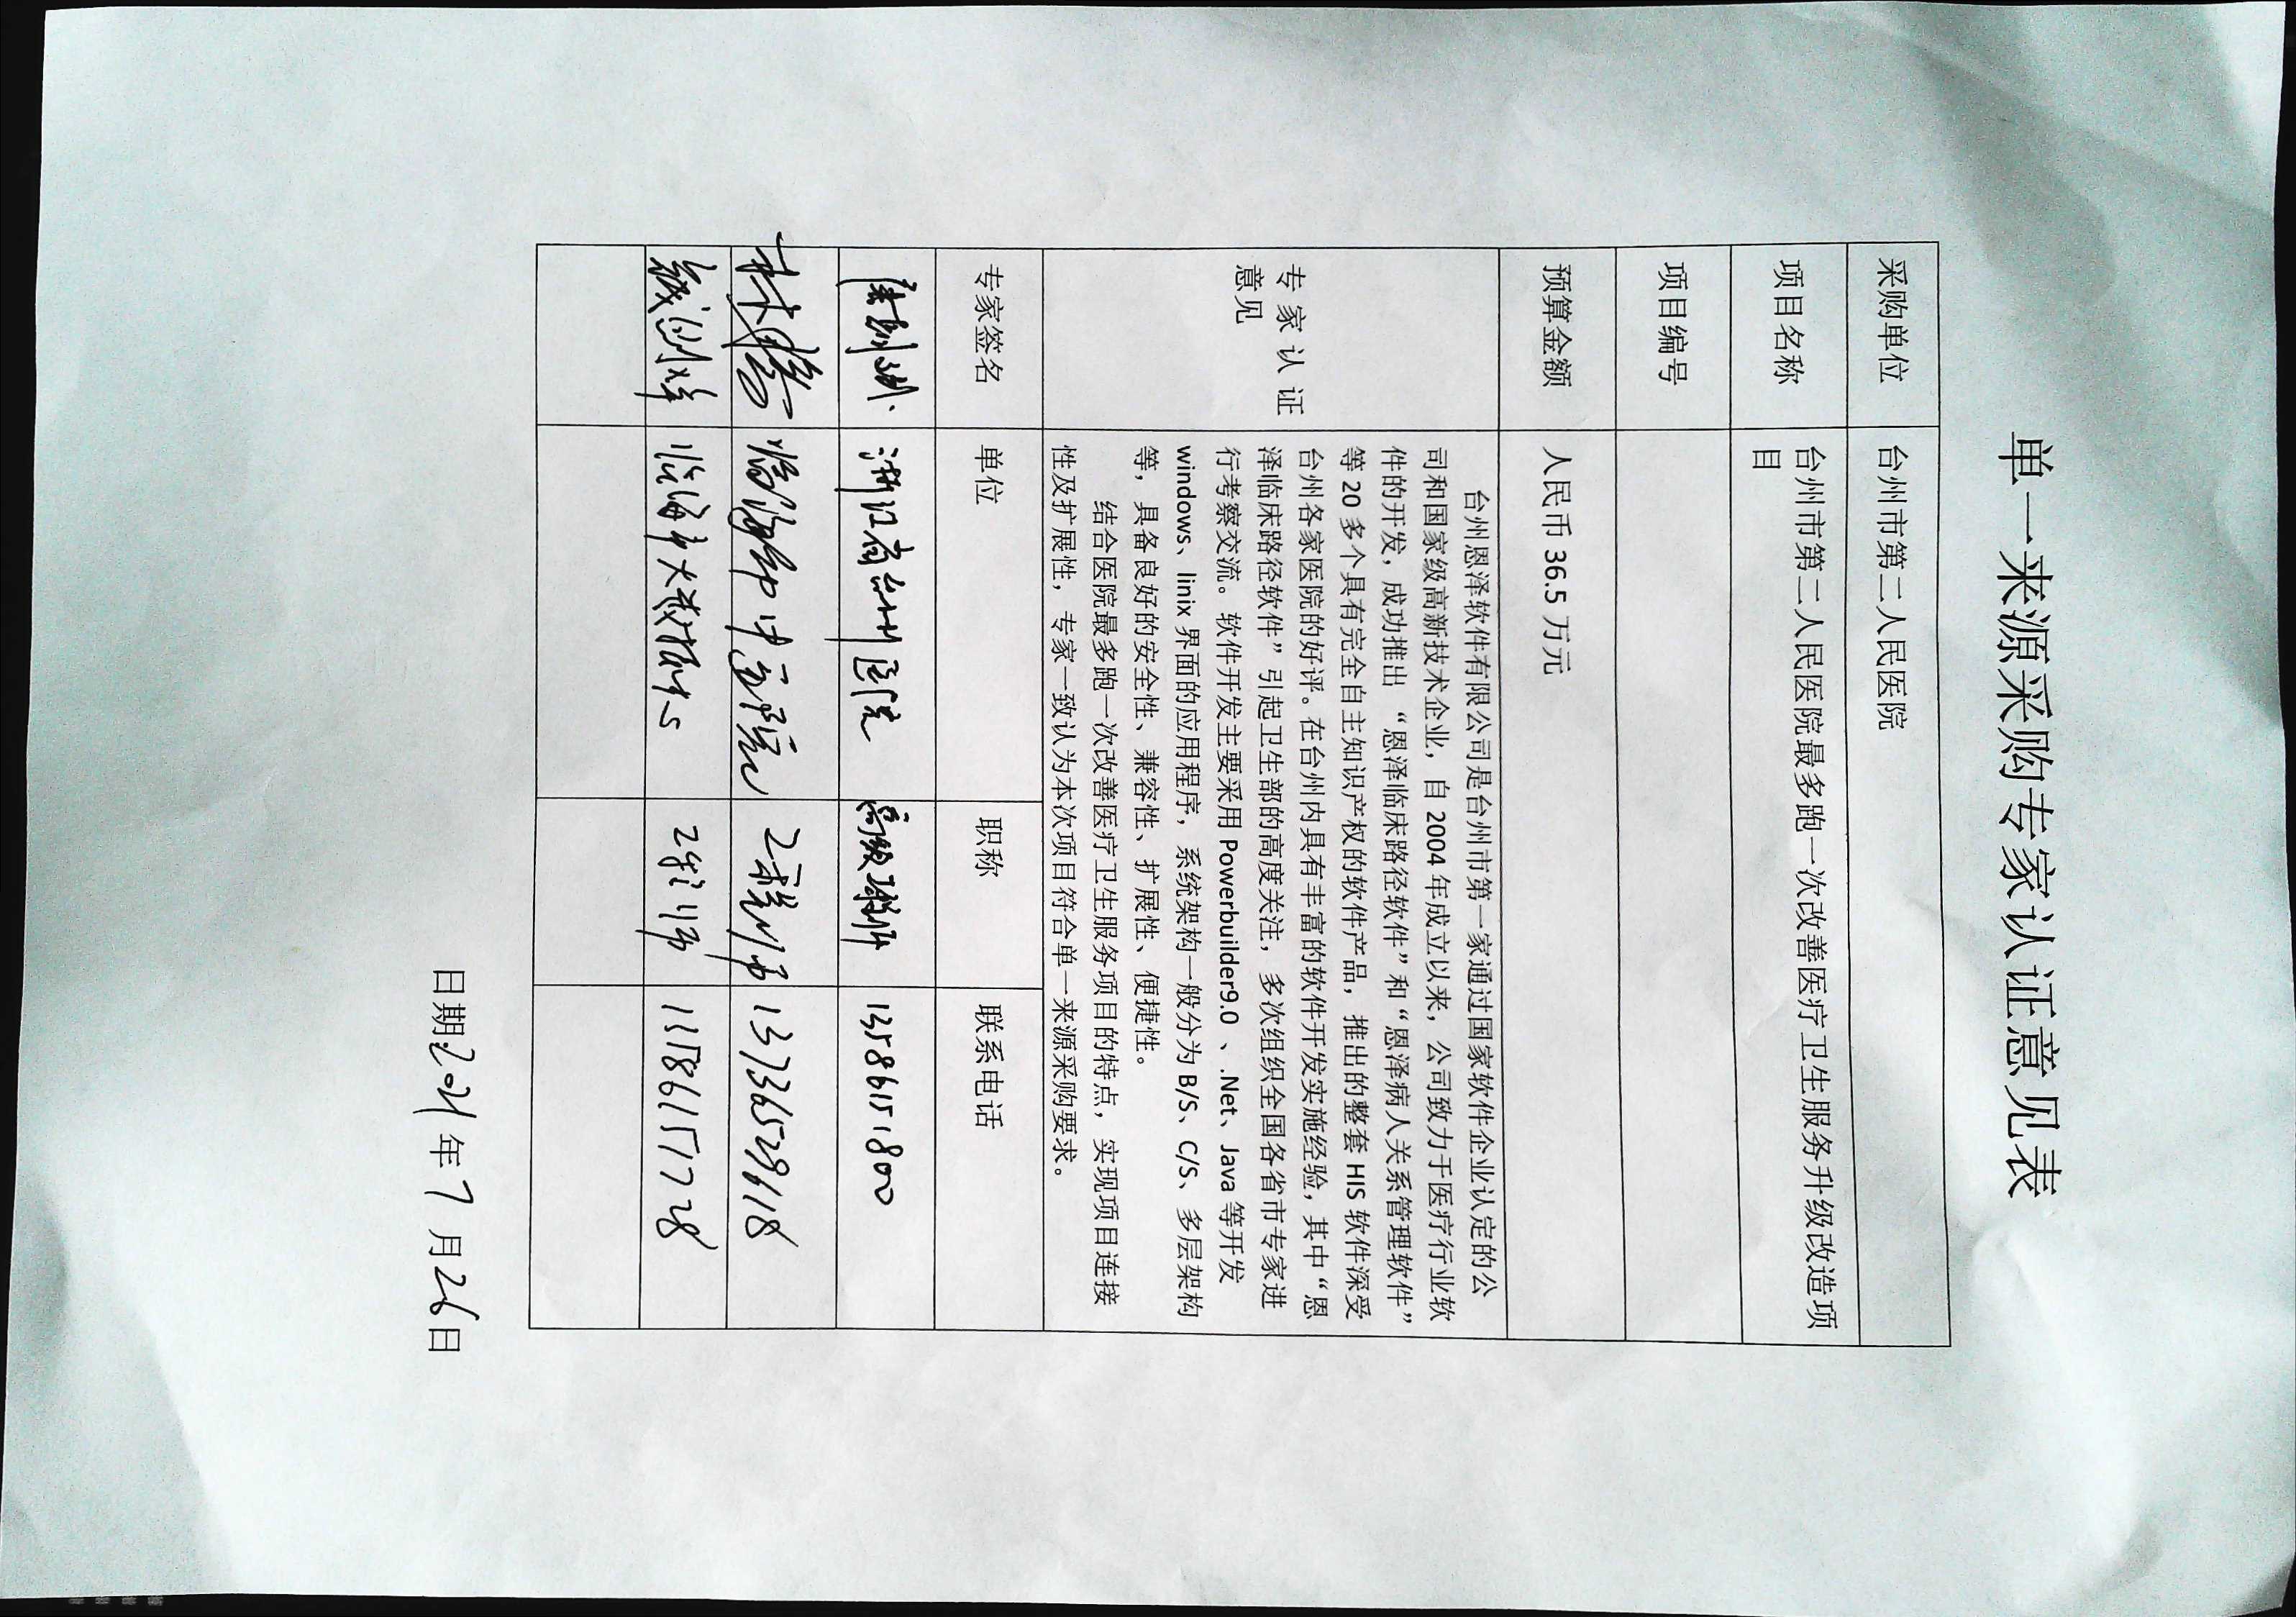 单一来源采购专家认证意见表
采购单位 台州市第二人民医院
项目名称 台州市第二人民医院最多跑一次改善医疗卫生服务升级改造项
目
项目编号
预算金额 人民币 36.5 万元
专家认证
意见
台州恩泽软件有限公司是台州市第一家通过国家软件企业认定的公
司和国家级高新技术企业，自 2004 年成立以来，公司致力于医疗行业软
件的开发，成功推出 “恩泽临床路径软件” 和 “恩泽病人关系管理软件”
等 20 多个具有完全自主知识产权的软件产品，推出的整套 HIS 软件深受
台州各家医院的好评。在台州内具有丰富的软件开发实施经验，其中 “恩
泽临床路径软件” 引起卫生部的高度关注，多次组织全国各省市专家进
行考察交流。软件开发主要采用 Powerbuilder9.0 、.Net、Java 等开发
windows、linix 界面的应用程序，系统架构一般分为 B/S、C/S、多层架构
等，具备良好的安全性、兼容性、扩展性、便捷性。
结合医院最多跑一次改善医疗卫生服务项目的特点，实现项目连接
性及扩展性，专家一致认为本次项目符合单一来源采购要求。
专家签名 单位 职称 联系电话
浙江省台州医院 高级工程师 13586151800
临海市中医院 工程师 13736529618
临海市大数据中心 工程师
日期:2021年7月26日